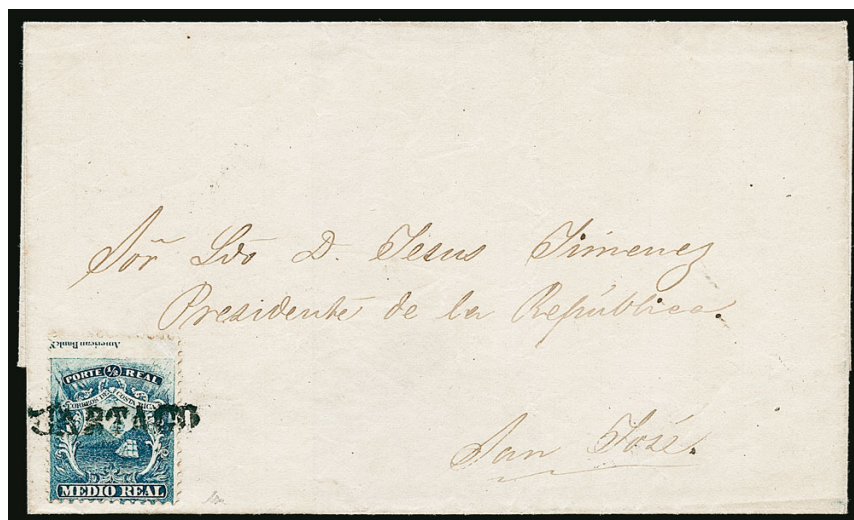 Sor̃ Ldo D. Jesus Jimenez
Presidente de la República.
San José.
American Bank
PORTE ½ REAL
CORREOS DE COSTA RICA
CARTAGO
MEDIO REAL